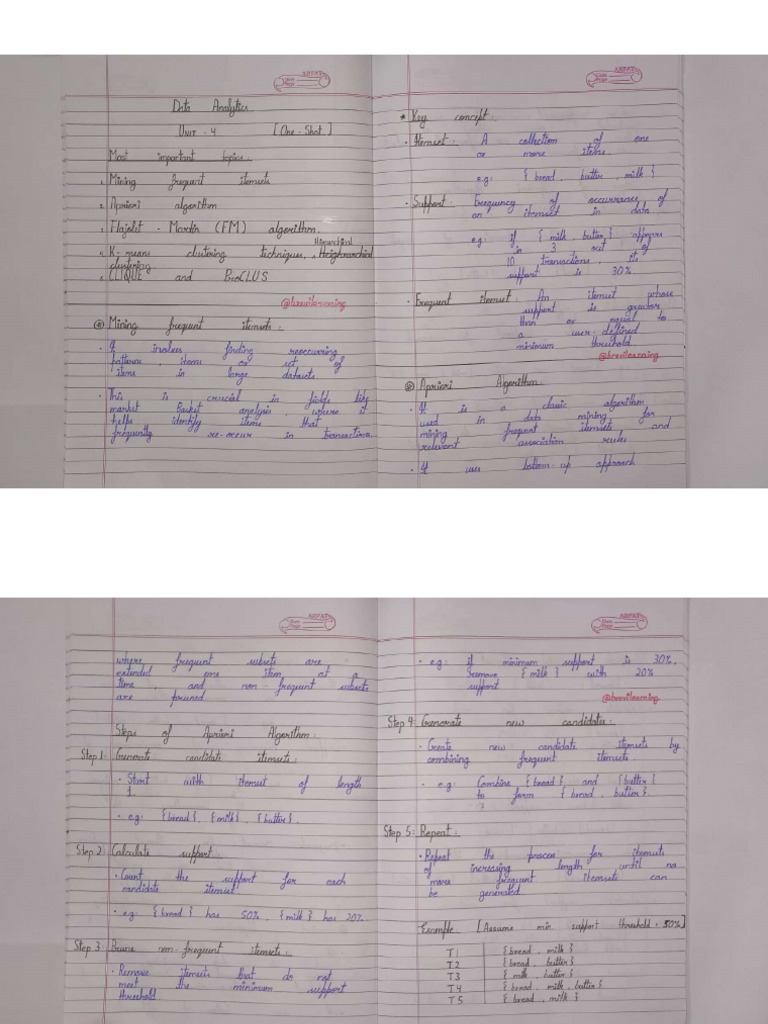 Data Analytics
UNIT - 4 [One-Shot]
Most important topics:
1. Mining frequent itemsets
2. Apriori algorithm
3. Flajolet - Martin (FM) algorithm.
4. K-means clustering techniques, Hierarchical
clustering
5. CLIQUE and ProCLUS
@brevilearning
* Mining frequent itemsets:
• It involves finding reoccurring
patterns, items or set of
items in large datasets
• This is crucial in fields like
market Basket analysis, where it
helps identify items that
frequently co-occur in transactions.
* Key concept:
• Itemset: A collection of one
or more items.
e.g: { bread, butter, milk }
• Support: Frequency of occurrance of
an itemset in data
e.g: if { milk, butter } appears
in 3 out of
10 transactions, its
support is 30%.
• Frequent itemset: An itemset whose
support is greater
than or equal to
a user-defined
minimum threshold
@brevilearning
* Apriori Algorithm
• It is a classic algorithm
used in data mining for
mining frequent itemsets and
relevant association rules
• It uses bottom-up approach
where frequent subsets are
extended one item at a
time, and non-frequent subsets
are pruned.
Steps of Apriori Algorithm:
Step 1: Generate candidate itemsets:
• Start with itemset of length
1.
• e.g: {bread}, {milk}, {butter}.
Step 2: Calculate support:
• Count the support for each
candidate itemset
• e.g: {bread} has 50%, {milk} has 20%.
Step 3: Prune non-frequent itemsets:
• Remove itemsets that do not
meet the minimum support
threshold.
• e.g: if minimum support is 30%,
remove {milk} with 20%
support
@brevilearning
Step 4: Generate new candidates:
• Create new candidate itemsets by
combining frequent itemsets
• e.g: Combine {bread} and {butter}
to form {bread, butter}.
Step 5: Repeat:
• Repeat the process for itemsets
of increasing length until no
more frequent itemsets can
be generated
Example: [Assume min. support threshold = 50%]
T1 {bread, milk}
T2 {bread, butter}
T3 {milk, butter}
T4 {bread, milk, butter}
T5 {bread, milk}